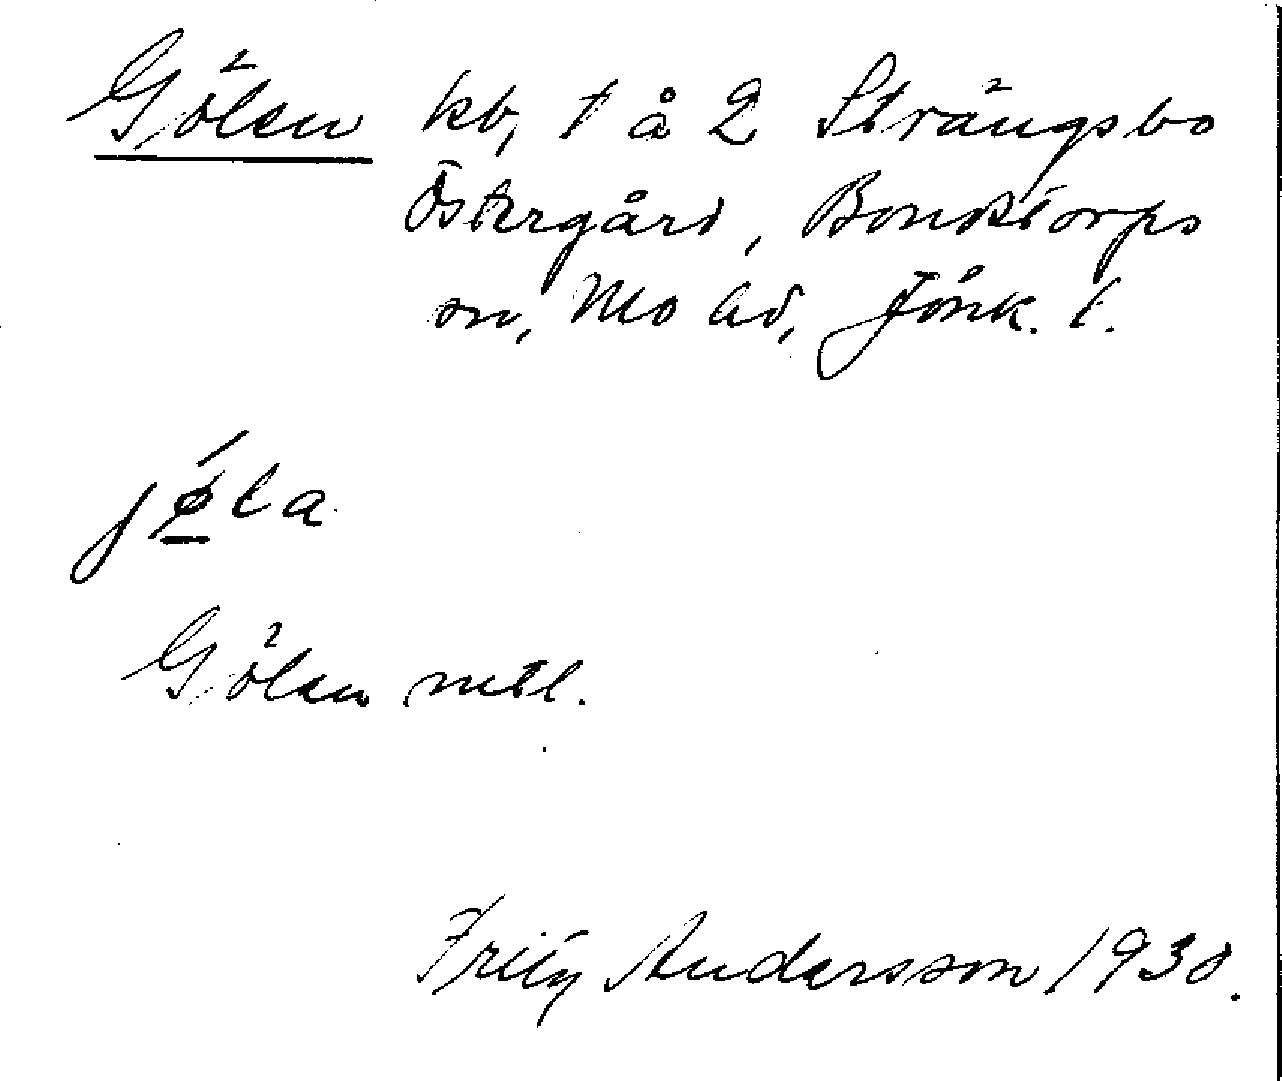 Gölen kb, t å 2 Strängsbo
Östergård, Bondstorps
sn, Mo hd, Jönk. l.
jǿ̱la
Gölen mtl.
Fritz Andersson 1930.